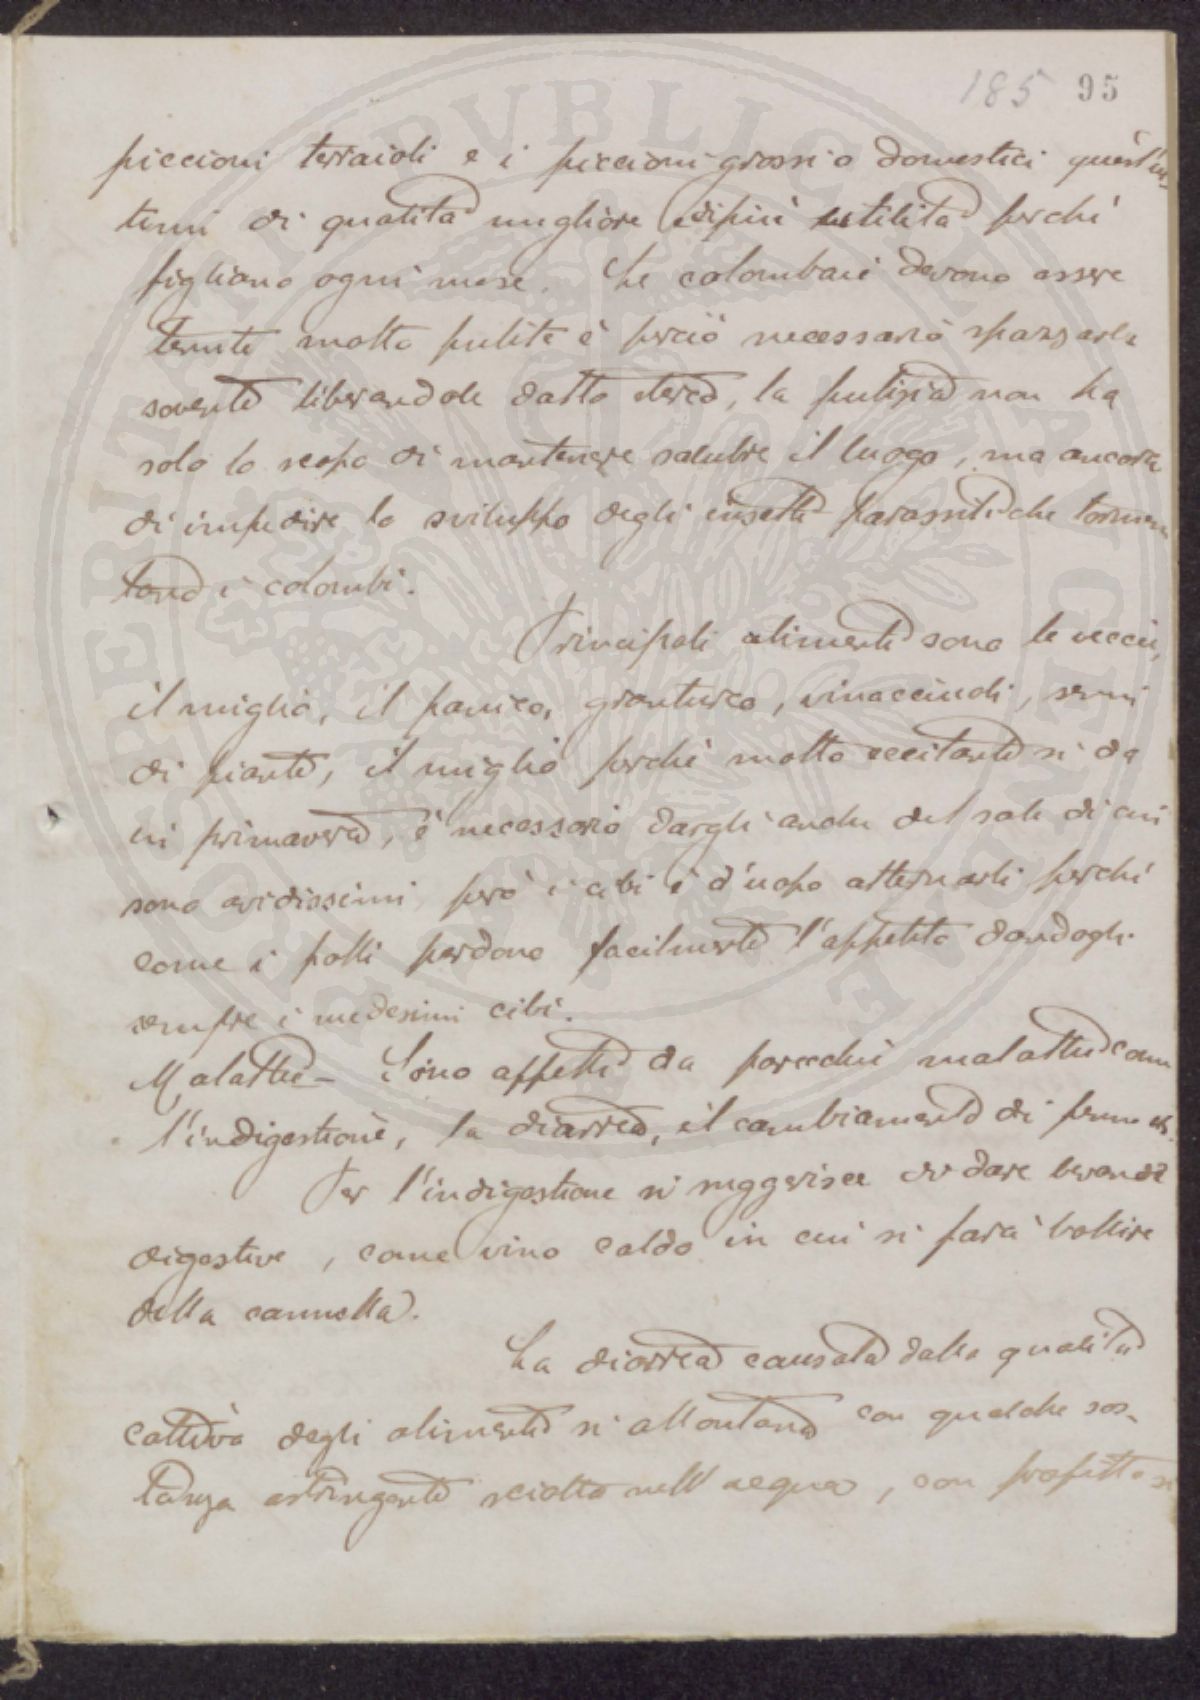 185 95
piccioni terraioli e i piccioni grossi o domestici quest'ul-
timi di qualità migliore e di più utilità perchè
figliano ogni mese. Le colombaie devono essere
tenute molto pulite è perciò necessario spazzarle
sovente liberandole dallo sterco, la pulizia non ha
solo lo scopo di mantenere salubre il luogo, ma ancora
di impedire lo sviluppo degli insetti parassiti che tormen-
tano i colombi.
Principali alimenti sono le veccie,
il miglio, il panico, granturco, vinacciuoli, semi
di piante, il miglio perchè molto eccitante si da
in primavera, è necessario dargli anche del sale di cui
sono avidissimi però i cibi è d'uopo alternarli perchè
come i polli perdono facilmente l'appetito dandogli
sempre i medesimi cibi.
Malattie - Sono affetti da parecchie malattie come
l'indigestione, la diarrea, il cambiamento di penne
Per l'indigestione si suggerisce di dare bevande
digestive, come vino caldo in cui si farà bollire
della cannella.
La diarrea causata dalla qualità
cattiva degli alimenti si allontana con qualche sos-
tanza astringente sciolta nell'acqua, con profitto si
PVBLICAE AVGENDAE PROSPERITATI